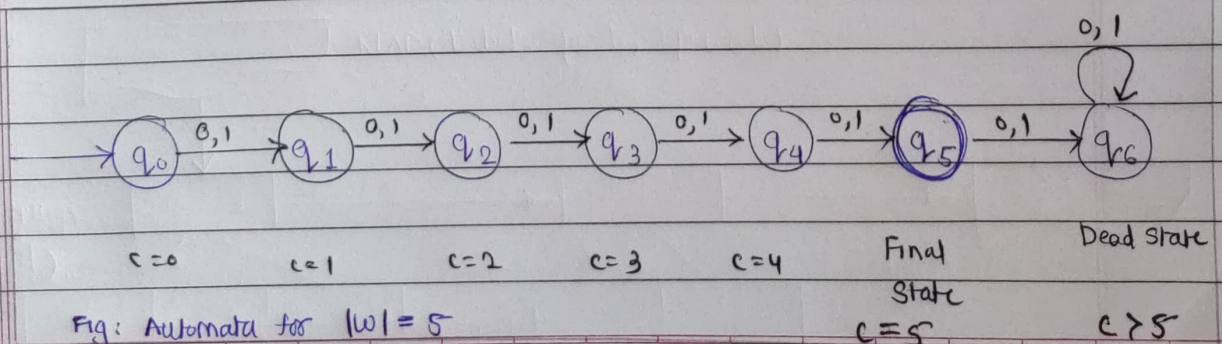 0, 1
q0 0,1 q1 0,1 q2 0,1 q3 0,1 q4 0,1 q5 0,1 q6
c=0 c=1 c=2 c=3 c=4 Final Dead State
State
Fig: Automata for |w| = 5 c=5 c>5